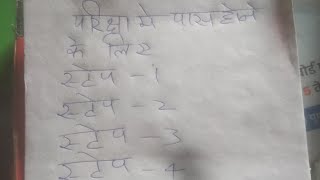 परिक्षा मे पास होने
के लिए
स्टेप - 1
स्टेप - 2
स्टेप - 3
स्टेप - 4